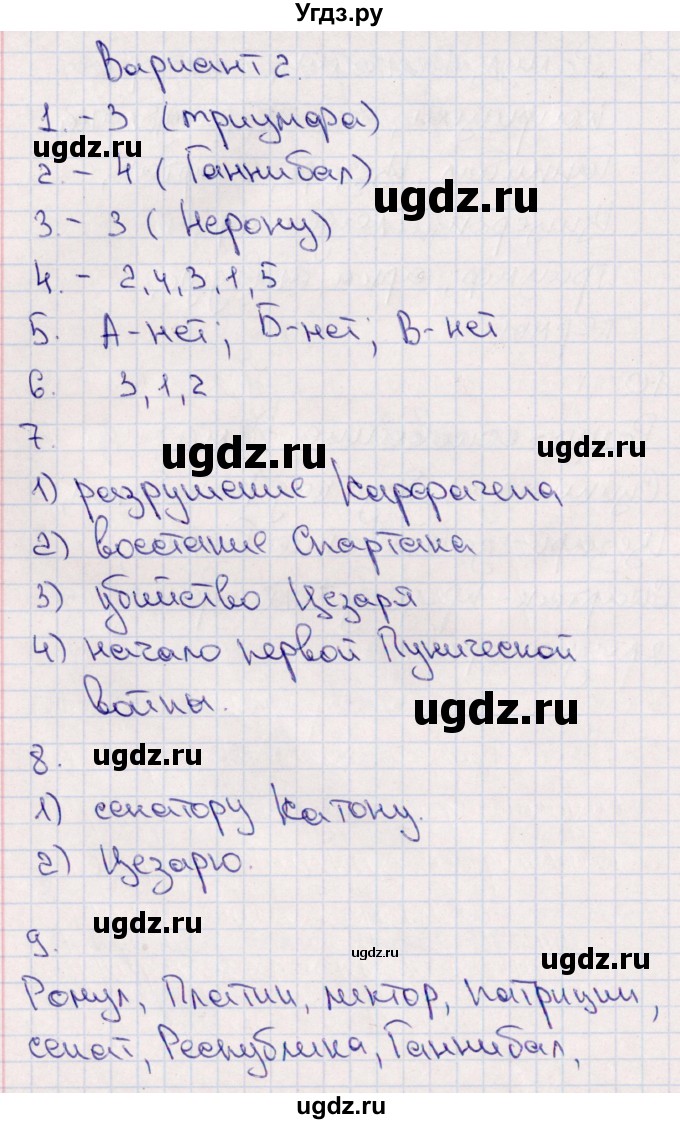 Угдз.ру
Вариант 2.
1. - 3 (триумфа)
ugdz.ru
2. - 4 (Ганнибал)
ugdz.ru
3. - 3 (Нерону)
4. - 2,4,3,1,5
5. А-нет; Б-нет; В-нет
6. 3,1,2
7.
ugdz.ru
ugdz.ru
1) разрушение Карфагена
2) восстание Спартака
ugdz.ru
3) убийство Цезаря
4) начало первой Пунической
войны.
ugdz.ru
8.
ugdz.ru
1) сенатору Катону.
2) Цезарю.
ugdz.ru
9.
ugdz.ru
ugdz.ru
Ромул, Плебеи, ликтор, патриции,
сенат, Республика, Ганнибал,
ugdz.ru